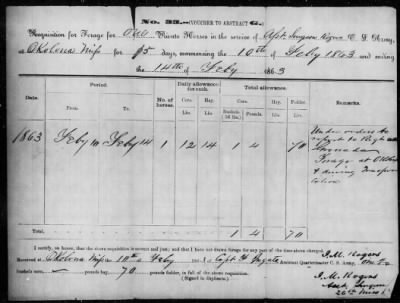 No. 33.—(VOUCHER TO ABSTRACT G.)
Requisition for Forage for One Private Horses in the service of Asst Surgeon Rogers C. S. Army,
at Okolona Miss for 5 days, commencing the 10th of Feby 1863 and ending
the 14th of Feby 1863
Date. Period. No. of horses. Daily allowance for each. Total allowance.
From. To. Corn. Hay. Corn. Hay. Fodder
Lbs. Lbs. Bushels (56 lbs.) Pounds. Lbs.
1863 Feby 10 to Feby 14 1 12 14 1 4 70
Under orders to
Forage at Okolona
& during
Total 1 4 70
I certify, on honor, that the above requisition is correct and just; and that I have not drawn forage for any part of the time above charged.
J. M. Rogers
Received at Okolona Miss 10th of Feby 1863 of Capt Assistant Quartermaster C. S. Army, One
bushels corn, — pounds hay, 70 pounds fodder, in full of the above requisition.
(Signed in duplicate.)
J. M. Rogers
Asst Surgeon
26th Miss